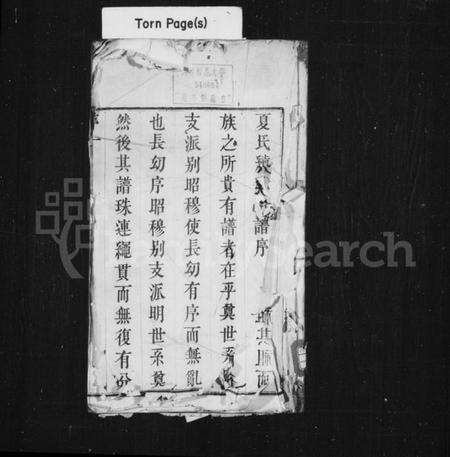 Torn Page(s)
夏氏譜序
族之所貴有譜者在乎奠世系
支派別昭穆使長幼有序而無亂
也長幼序昭穆別支派明世系奠
然後其譜珠連繩貫而無復有分